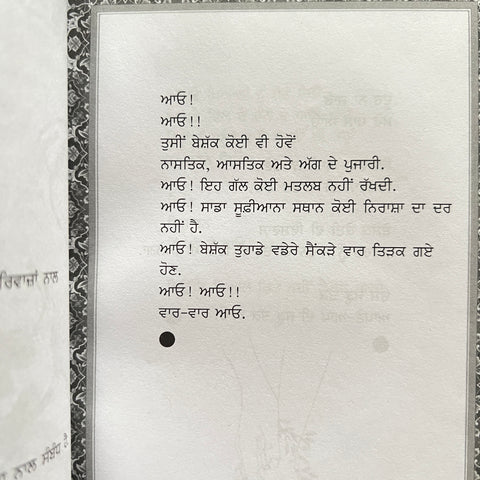 ਆਓ!
ਆਓ!!
ਤੁਸੀਂ ਬੇਸ਼ੱਕ ਕੋਈ ਵੀ ਹੋਵੋਂ
ਨਾਸਤਿਕ, ਆਸਤਿਕ ਅਤੇ ਅੱਗ ਦੇ ਪੁਜਾਰੀ.
ਆਓ! ਇਹ ਗੱਲ ਕੋਈ ਮਤਲਬ ਨਹੀਂ ਰੱਖਦੀ.
ਆਓ! ਸਾਡਾ ਸੂਫ਼ੀਆਨਾ ਸਥਾਨ ਕੋਈ ਨਿਰਾਸ਼ਾ ਦਾ ਦਰ
ਨਹੀਂ ਹੈ.
ਆਓ! ਬੇਸ਼ੱਕ ਤੁਹਾਡੇ ਵਡੇਰੇ ਸੈਂਕੜੇ ਵਾਰ ਤਿੜਕ ਗਏ
ਹੋਣ.
ਆਓ! ਆਓ!!
ਵਾਰ-ਵਾਰ ਆਓ.
ਰਿਵਾਜ਼ਾਂ ਨਾਲ
ਨਾਲ ਸੰਬੰਧ ਹੈ